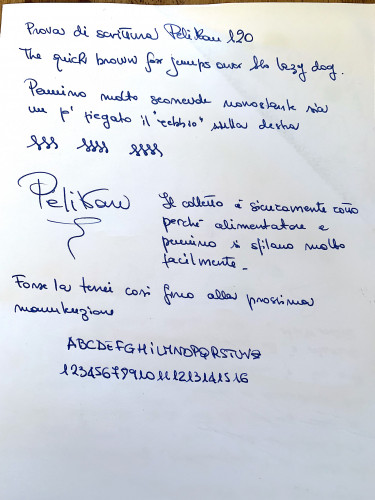 Prova di scrittura Pelikan 120
The quick brown fox jumps over the lazy dog.
Pennino molto scorrevole nonostante sia
un po' piegato il "rebbio" sulla destra
Pelikan
Il colletto è sicuramente rotto
perché alimentatore e
pennino si sfilano molto
facilmente.
Forse la terrei così fino alla prossima
manutenzione
ABCDEFGHiLMNOPQRSTUVZ
12345678910111213141516